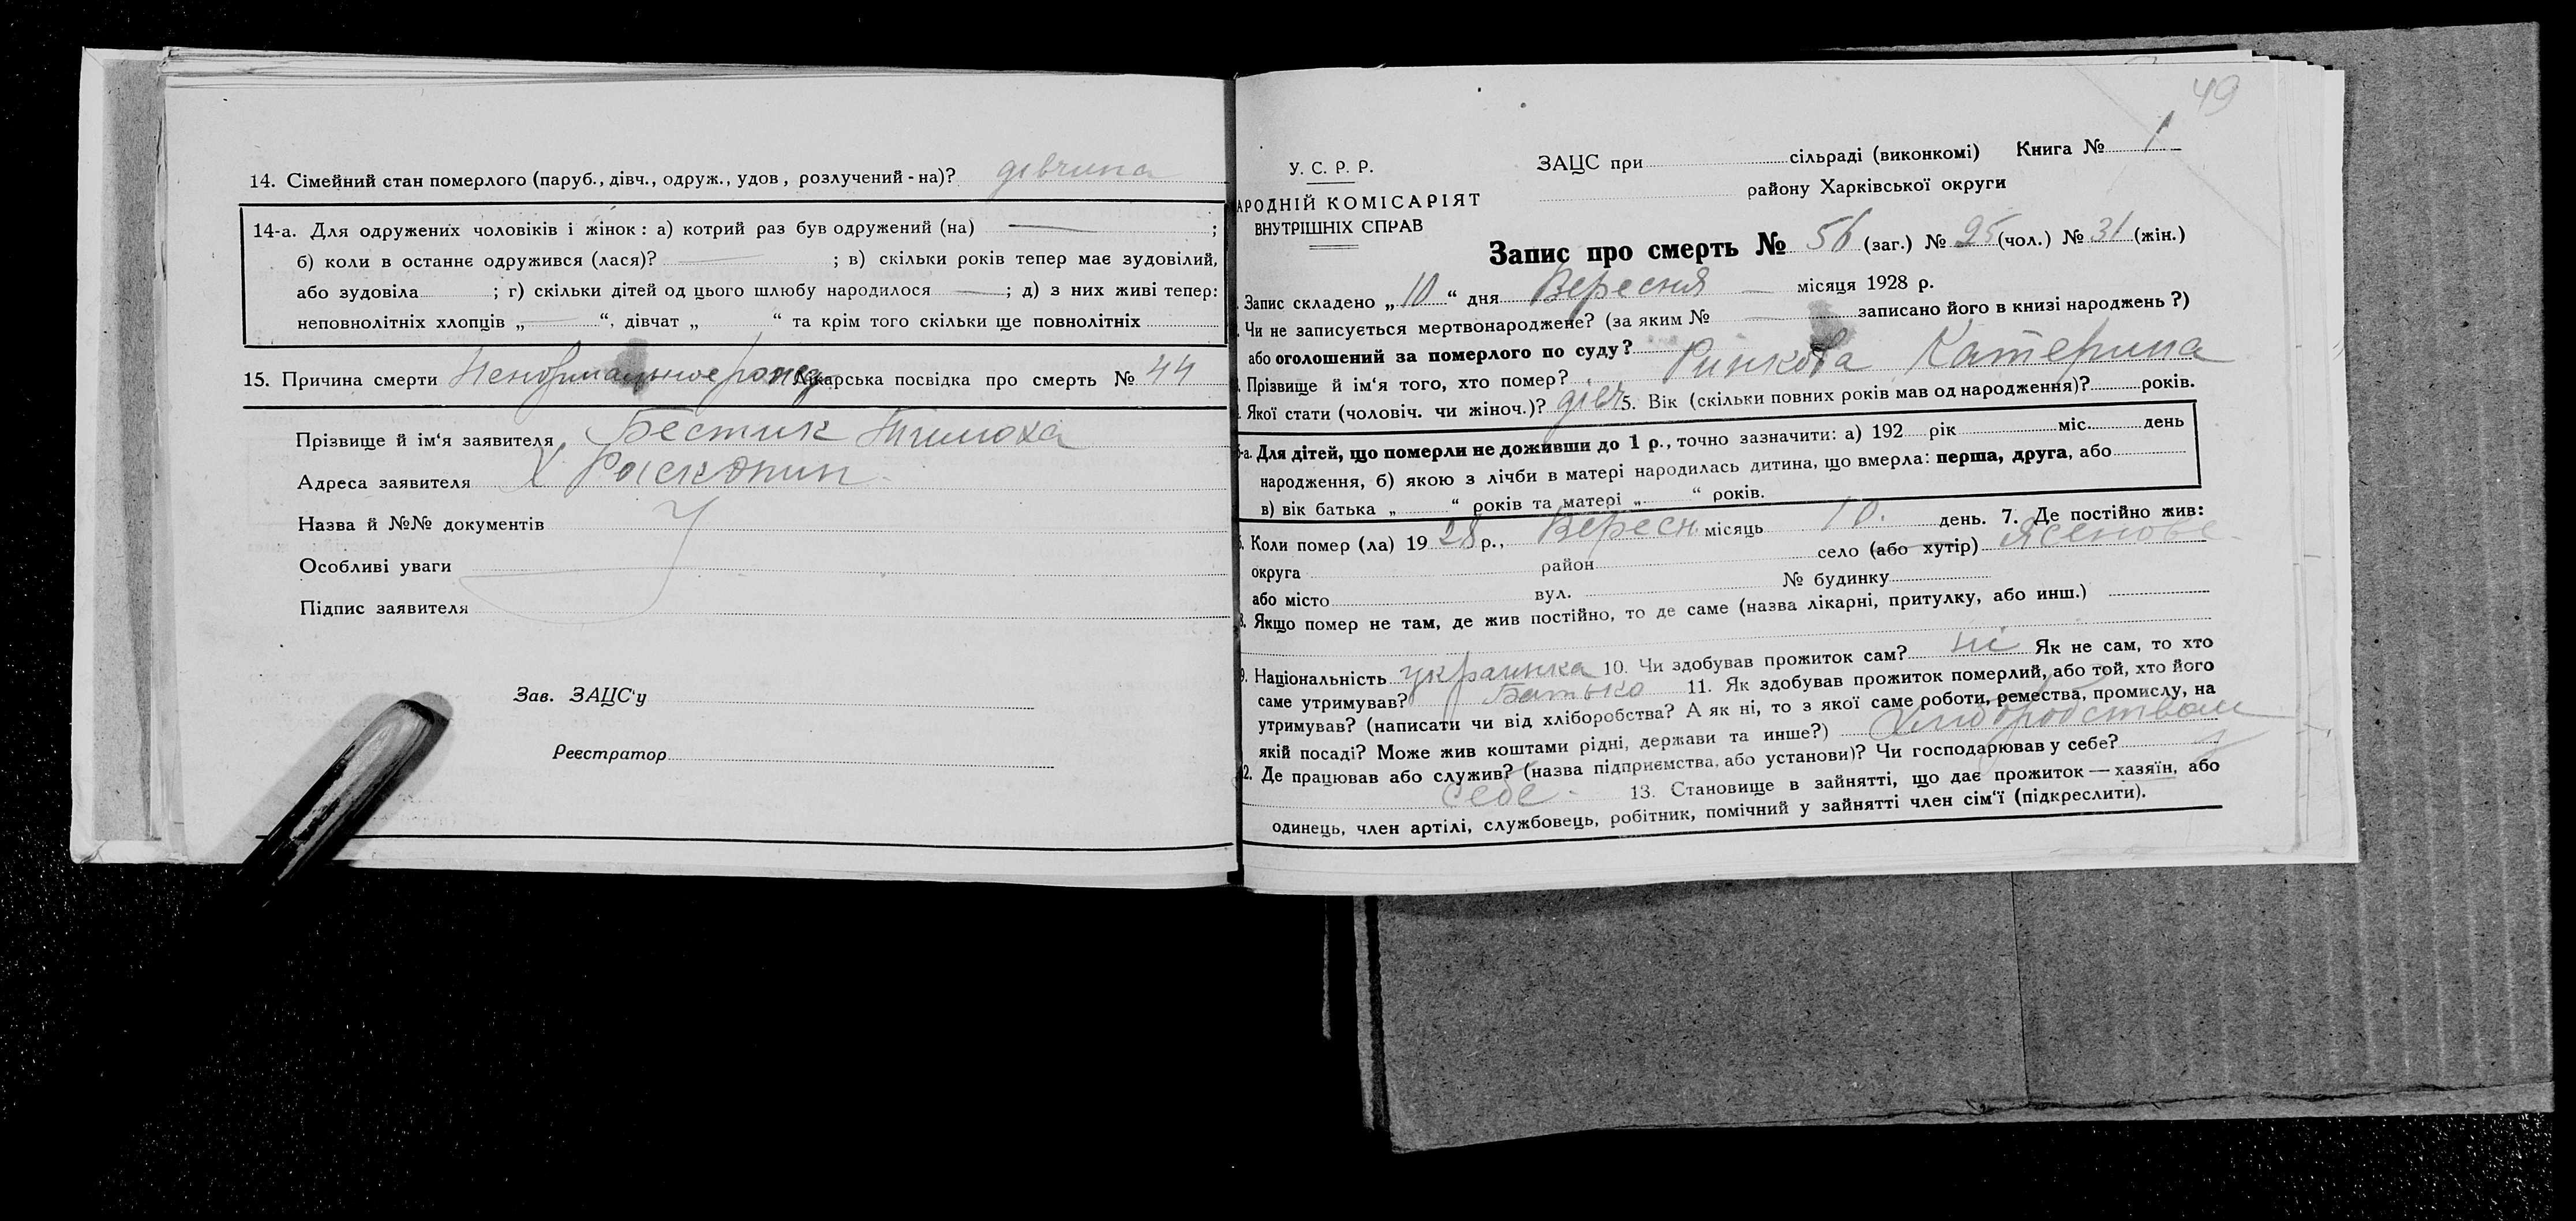 14. Сімейний стан померлого (паруб., дівч., одруж., удов, розлучений-на)? дівчина
14-а. Для одружених чоловіків і жінок: а) котрий раз був одружений (на) — ;
б) коли в останнє одружився (лася)? — ; в) скільки років тепер має зудовілий,
або зудовіла ; г) скільки дітей од цього шлюбу народилося — ; д) з них живі тепер:
неповнолітніх хлопців „ — “, дівчат „ “ та крім того скільки ще повнолітніх
15. Причина смерти Ненормальное Лікарська посвідка про смерть № 44
Прізвище й ім'я заявителя Бестик Тимоха
Адреса заявителя Х
Назва й №№ документів
Особливі уваги
Підпис заявителя
Зав. ЗАЦС'у
Реєстратор
49
У. С. Р. Р.
АРОДНІЙ КОМІСАРІЯТ
ВНУТРІШНІХ СПРАВ
ЗАЦС при сільраді (виконкомі) Книга № 1
району Харківської округи
Запис про смерть № 56 (заг.) № 25 (чол.) № 31 (жін.)
Запис складено „10“ дня Вересня — місяця 1928 р.
Чи не записується мертвонароджене? (за яким № — записано його в книзі народжень?)
або оголошений за померлого по суду?
Прізвище й ім'я того, хто помер? Ринкова Катерина
Якої стати (чоловіч. чи жіноч.)? дівч 5. Вік (скільки повних років мав од народження)? років.
-а. Для дітей, що померли не доживши до 1 р., точно зазначити: а) 192 рік міс. день
народження, б) якою з лічби в матері народилась дитина, що вмерла: перша, друга, або
в) вік батька „ “ років та матері „ “ років.
Коли помер (ла) 1928 р., Вересн. місяць 10. день. 7. Де постійно жив:
округа район село (або хутір) Ясенове
або місто вул. № будинку
8. Якщо помер не там, де жив постійно, то де саме (назва лікарні, притулку, або инш.)
9. Національність украинка 10. Чи здобував прожиток сам? ні Як не сам, то хто
саме утримував? Батько 11. Як здобував прожиток померлий, або той, хто його
утримував? (написати чи від хліборобства? А як ні, то з якої саме роботи, ремества, промислу, на
якій посаді? Може жив коштами рідні, держави та инше?) Хлиборобством
2. Де працював або служив? (назва підприємства, або установи)? Чи господарював у себе? у
себе. 13. Становище в зайнятті, що дає прожиток — хазяїн, або
одинець, член артілі, службовець, робітник, помічний у зайнятті член сім'ї (підкреслити).